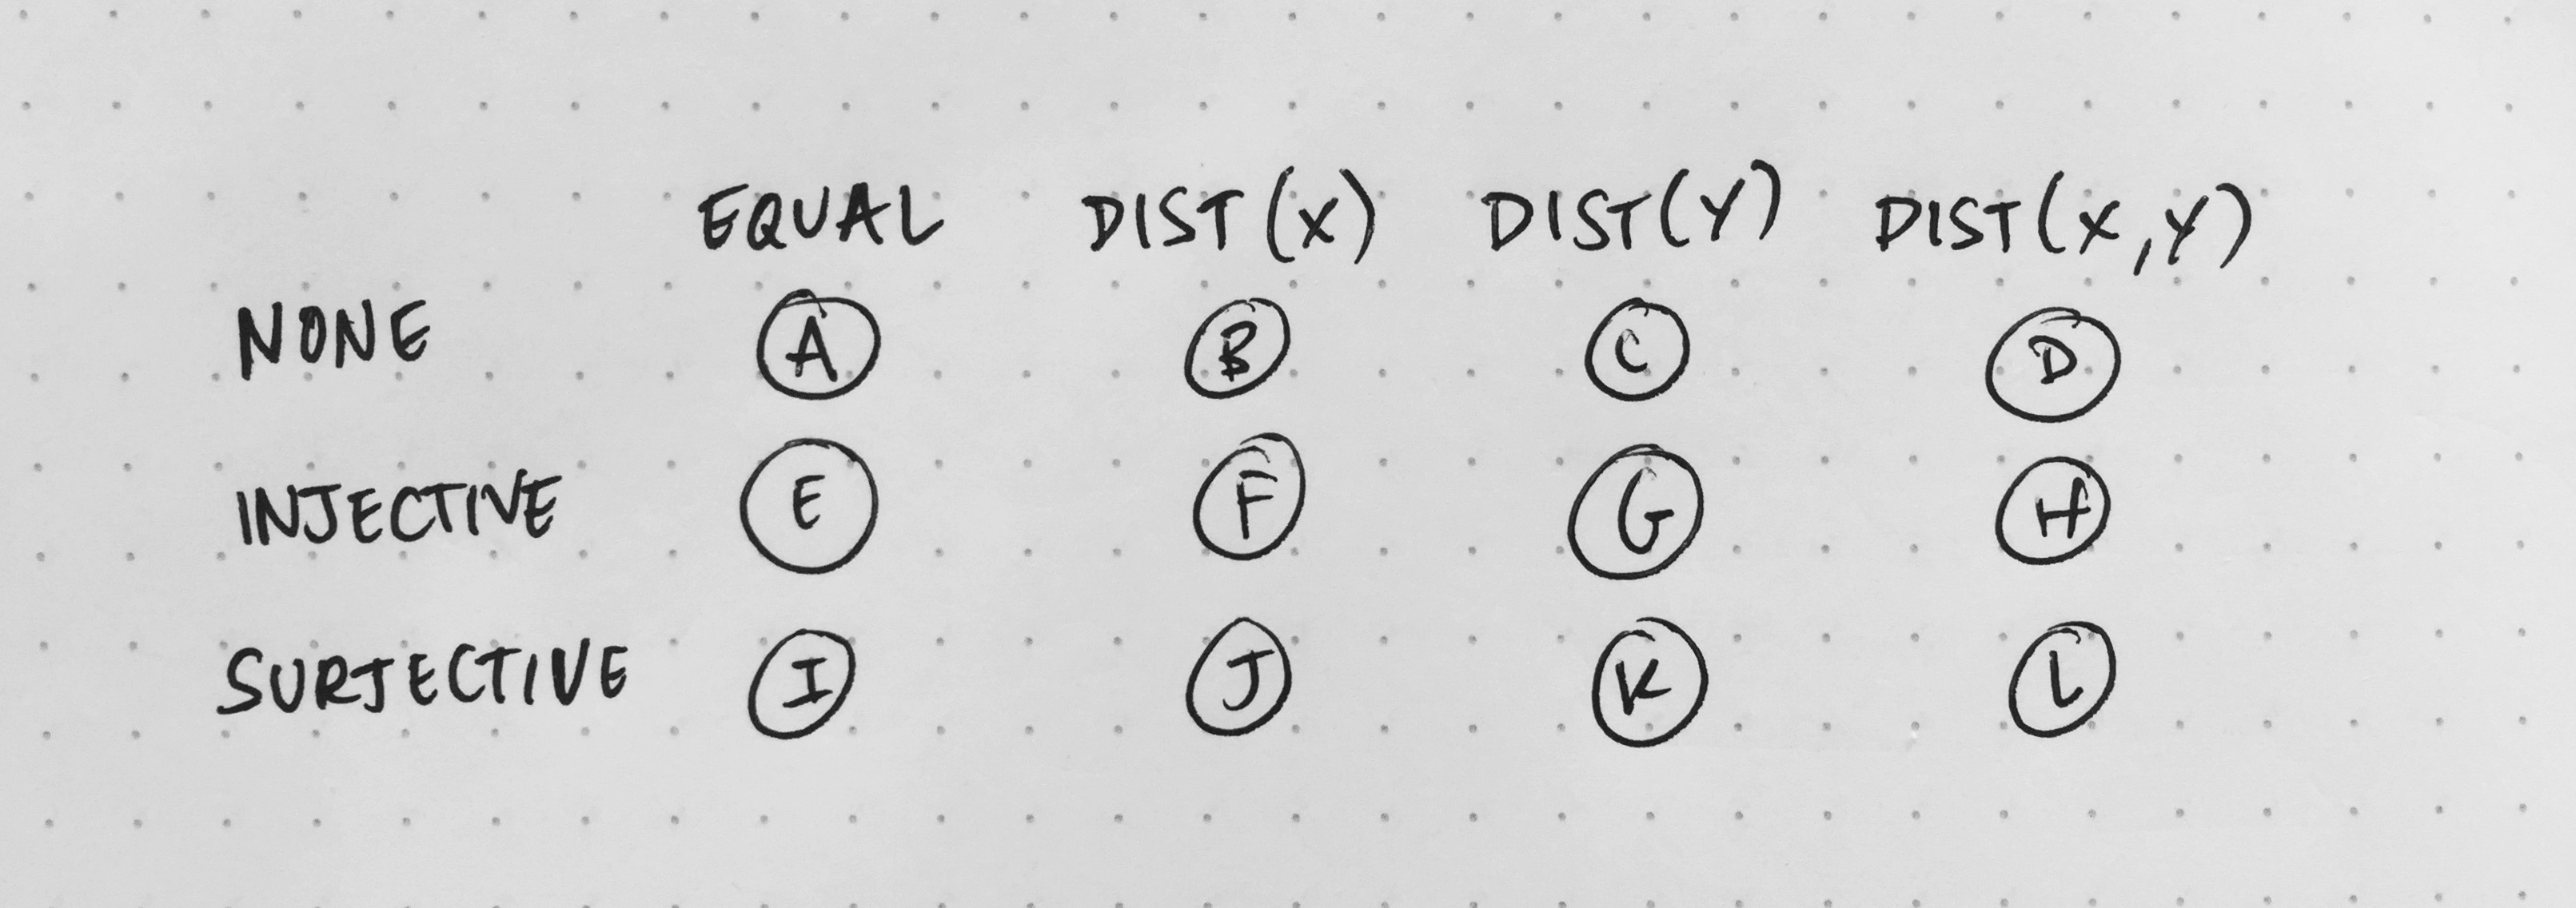 EQUAL DIST(X) DIST(Y) DIST(X,Y)
NONE A B C D
INJECTIVE E F G H
SURJECTIVE I J K L